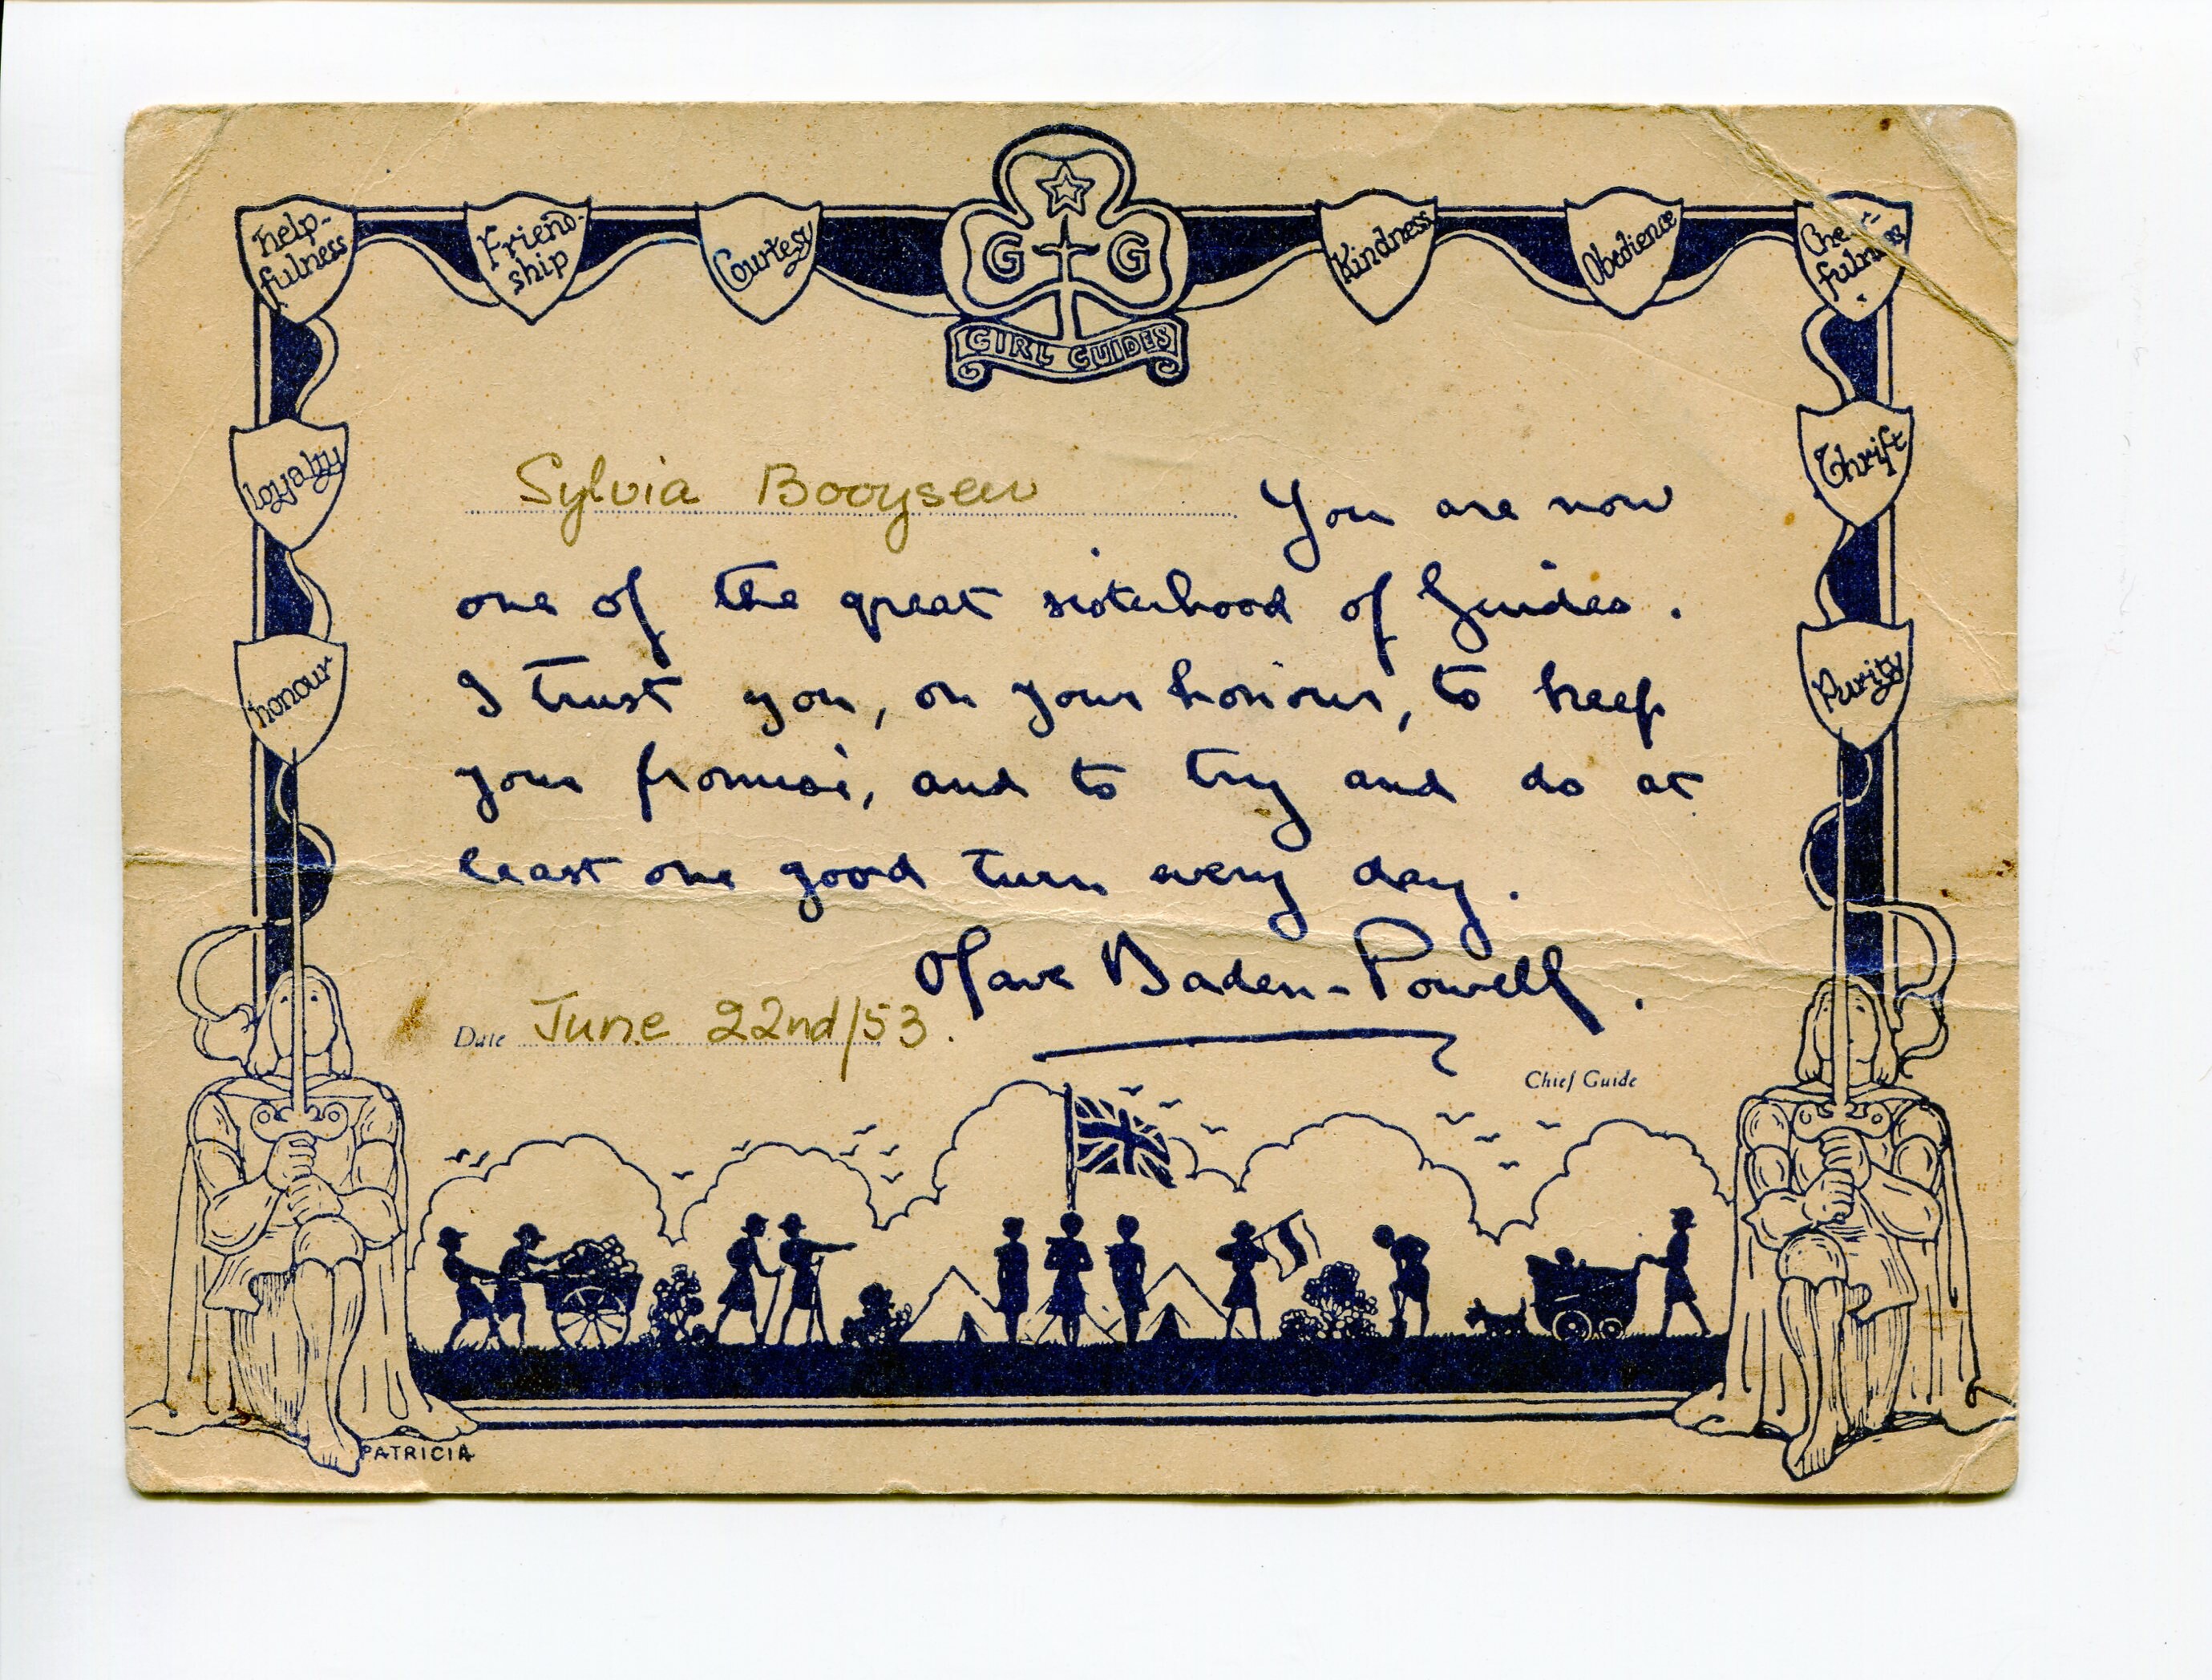 Help-
fulness
Friend-
ship
Courtesy
G G
GIRL GUIDES
Kindness
Obedience
fulness
Loyalty
Thrift
honour
Purity
Sylvia Booysen You are now
one of the great sisterhood of Guides.
I trust you, on your honour, to keep
your promise, and to try and do at
least one good turn every day.
Olave Baden-Powell.
Date June 22nd/53.
Chief Guide
PATRICIA